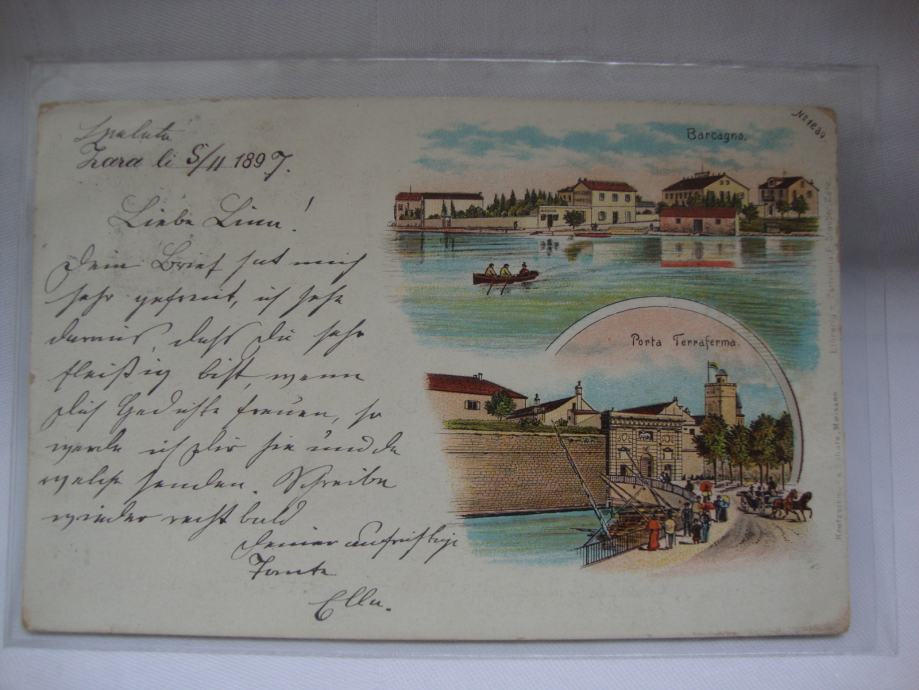 Spalato
Zara li 5/11 1897.
Liebe Linn!
Dein Brief hat mich
sehr gefreut, ich sehe
daraus, daß Du sehr
fleißig bist, wenn
Dich Gedichte freuen, so
werde ich Dir hie und da
welche senden. Schreibe
wieder recht bald
Deiner aufrichtige
Tante
Ella.
Barcagno.
Porta Terraferma.